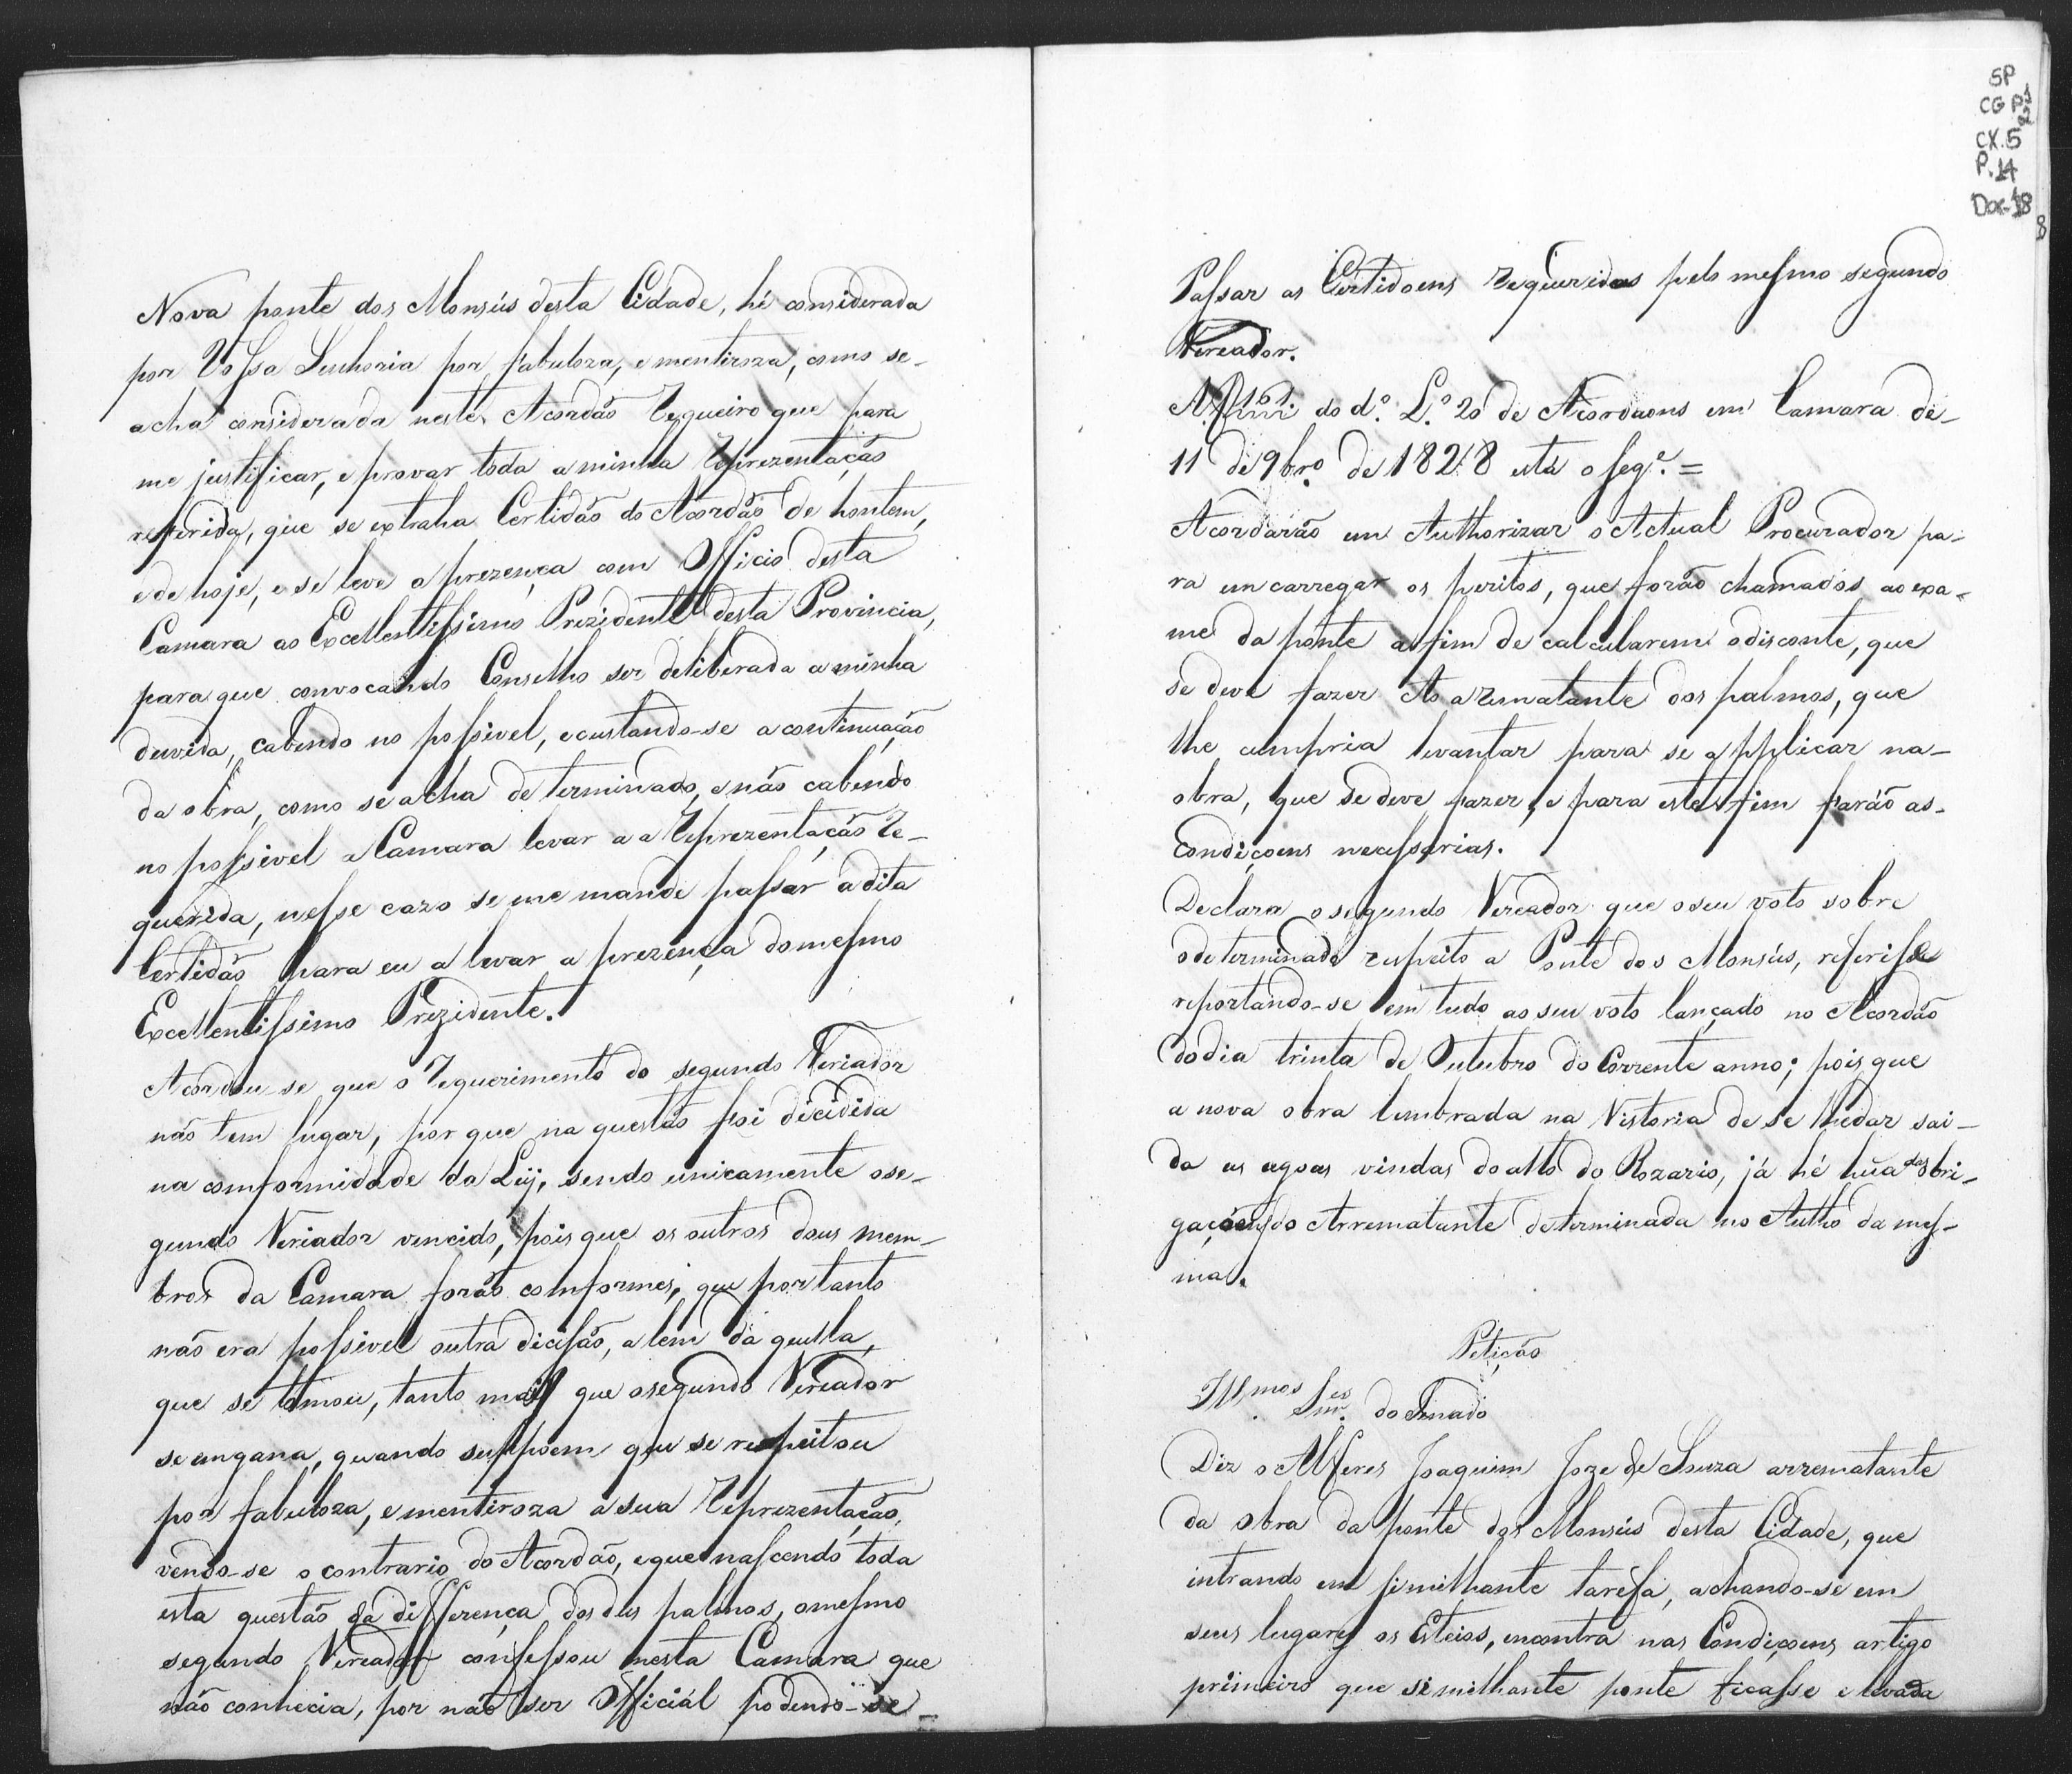 Nova ponte dos Monsús desta Cidade, hé considerada
por Vossa Senhoria por fabuloza, e mentiroza, como se-
acha considerada neste Acordão Requeiro que para
me justificar, e provar toda a minha Reprezentação
referida, que se extraha Certidão do Acordão de hontem,
e de hoje, e se leve a prezença com Officio desta
Camara ao Excellentissimo Prezidente desta Provincia,
para que convocando Conselho ser deliberada a minha
duvida, cabendo no possivel, e custando-se a continuação
da obra, como se acha determinado, e não cabendo
no possivel a Camara levar a a Reprezentação Re-
querida, nesse cazo se me mande passar a dita
Certidão para eu a levar a prezença do mesmo
Excellentissimo Prezidente.
Acordou-se que o Requerimento do segundo Veriador
não tem lugar, por que na questão foi dicidida
na comformidade da Ley, sendo unicamente o se-
gundo Veriador vencido, pois que os outros dous mem-
bros da Camara forão comformes, que por tanto
não era possivel outra dicisão, alem da quella,
que se tomou, tanto mais que o segundo Vereador
se engana, quando suppoem que se respeitou
por fabuloza, e mentiroza a sua Reprezentação,
vendo-se o contrario do Acordão, e que nascendo toda
esta questão da differença dos des palmos, o mesmo
segundo Vereador confessou nesta Camara que
não conhecia, por não ser Official podendo-se
SP
CG P2
CX.5
P.14
Doc-18
8
Passar as Certidoens requeridas pelo mesmo segundo
Vereador.
161 do d.º L.º 20 de Acordaons em Camara de-
11 de 9br.º de 1828 está o seg.e =
Acordarão em Authorizar o Actual Procurador pa-
ra encarregar os peritos, que forão chamados ao exa-
me da ponte afim de calcularem o disconte, que
se deve fazer Ao arrematante dos palmos, que
lhe cumpria levantar para se applicar na-
obra, que se deve fazer, e para este fim farão as-
Condiçoens necessarias.
Declara o segundo Vereador que o seu voto sobre
o determinado respeito a Ponte dos Monsús, referisse
reportando-se em tudo ao seu voto lançado no Acordão
do dia trinta de Outubro do Corrente anno; pois que
a nova obra lembrada na Vistoria de se lhe dar sai-
da as agoas vindas do alto do Rozario, já hé hũa das obri-
gaçoens do Arrematante determinada no Autto da mes-
ma.
Petição
Ill.mos Snr.es do Senado
Diz o Alferes Joaquim Joze de Souza arrematante
da obra da ponte dos Monsús desta Cidade, que
intrando em similhante tarefa, achando-se em
seus lugares os Esteios, encontra nas Condiçoens artigo
primeiro que similhante ponte ficasse elevada